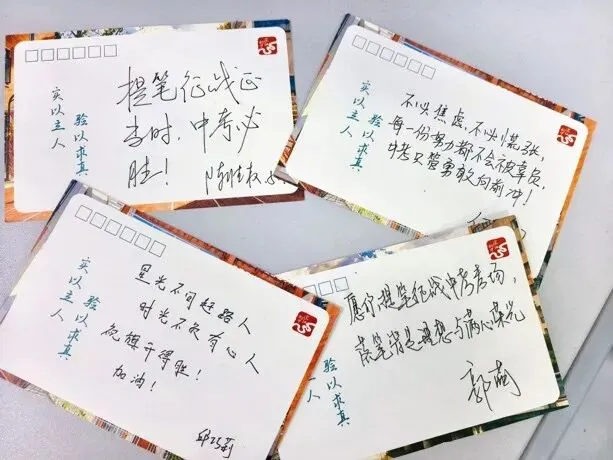 实以立人
验以求真
提笔征战正
当时，中考必
胜！
实以立人
验以求真
不必焦虑，不必慌张，
每一份努力都不会被辜负，
中考只管勇敢向前冲！
实以立人
验以求真
星光不问赶路人
时光不负有心人
祝旗开得胜！
加油！
验以求真
人
愿你提笔征战中考考场，
落笔皆是理想与满心荣光
郭萌